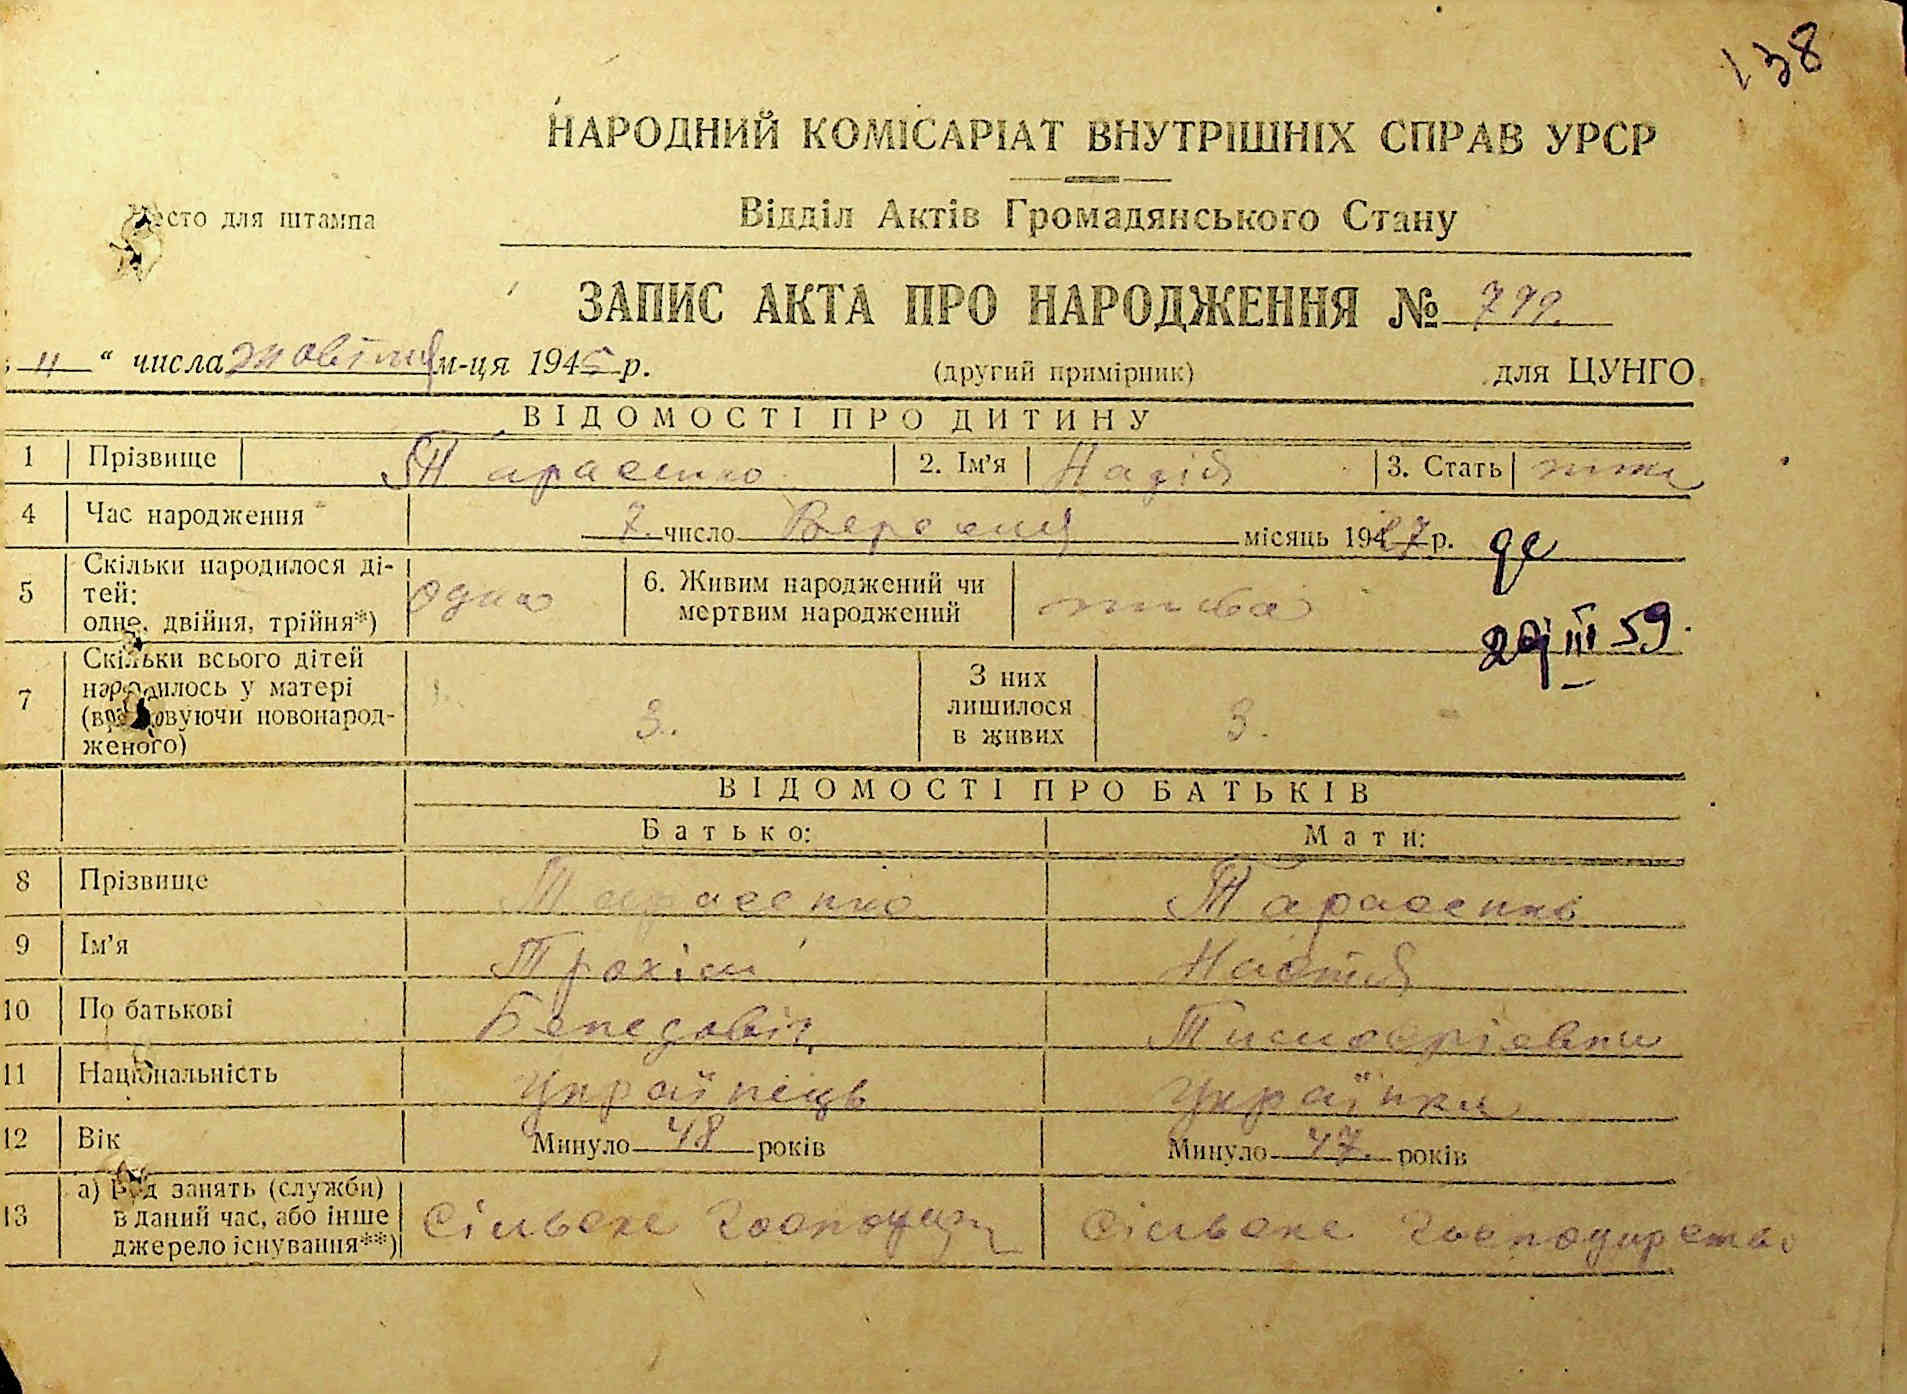 138
НАРОДНИЙ КОМІСАРІАТ ВНУТРІШНІХ СПРАВ УРСР
Місто для штампа
Відділ Актів Громадянського Стану
ЗАПИС АКТА ПРО НАРОДЖЕННЯ № 799.
„ 11 “ числа жовтня м-ця 1945 р. (другий примірник) для ЦУНГО.
ВІДОМОСТІ ПРО ДИТИНУ
1 Прізвище Тарасенко 2. Ім'я Надія 3. Стать жін
4 Час народження 7. число Вересня місяць 1927 р.
5 Скільки народилося ді-
тей:
одне, двійня, трійня*) одна 6. Живим народжений чи
мертвим народжений жива
29 III 59.
7 Скільки всього дітей
народилось у матері
(враховуючи новонарод-
женого) 3. З них
лишилося
в живих 3.
ВІДОМОСТІ ПРО БАТЬКІВ
Батько: Мати:
8 Прізвище Тарасенко Тарасенко
9 Ім'я Трохім Настя
10 По батькові
11 Національність Українець Українка
12 Вік Минуло 48 років Минуло 47. років
13 а) Род занять (служби)
в даний час, або інше
джерело існування**) Сільске Сільске господарство